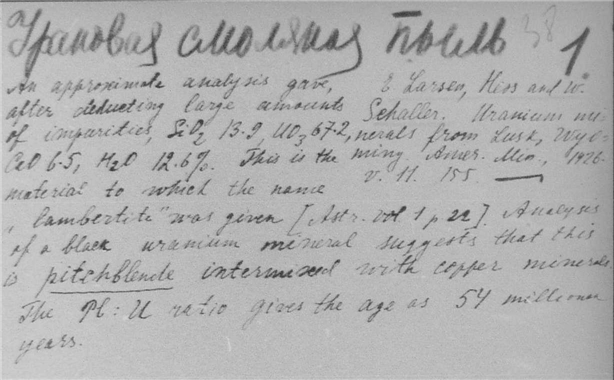 Урановая смоляная пыль 38 1
An approximate analysis gave,
after deducting large amounts
of impurities, SiO2 13.9, UO3 67.2,
CaO 6.5, H2O 12.6%. This is the
material to which the name
"lambertite" was given [Astr. vol 1 p 22]. Analysis
of a black uranium mineral suggests that this
is pitchblende intermixed with copper minerals
The Pb: U ratio gives the age as 54 millionen
years.
E Larsen, Hios and W.
Schaller. Uranium mi-
nerals from Lusk, Wyo-
ming, Amer. Min., 1926.
v. 11. 155